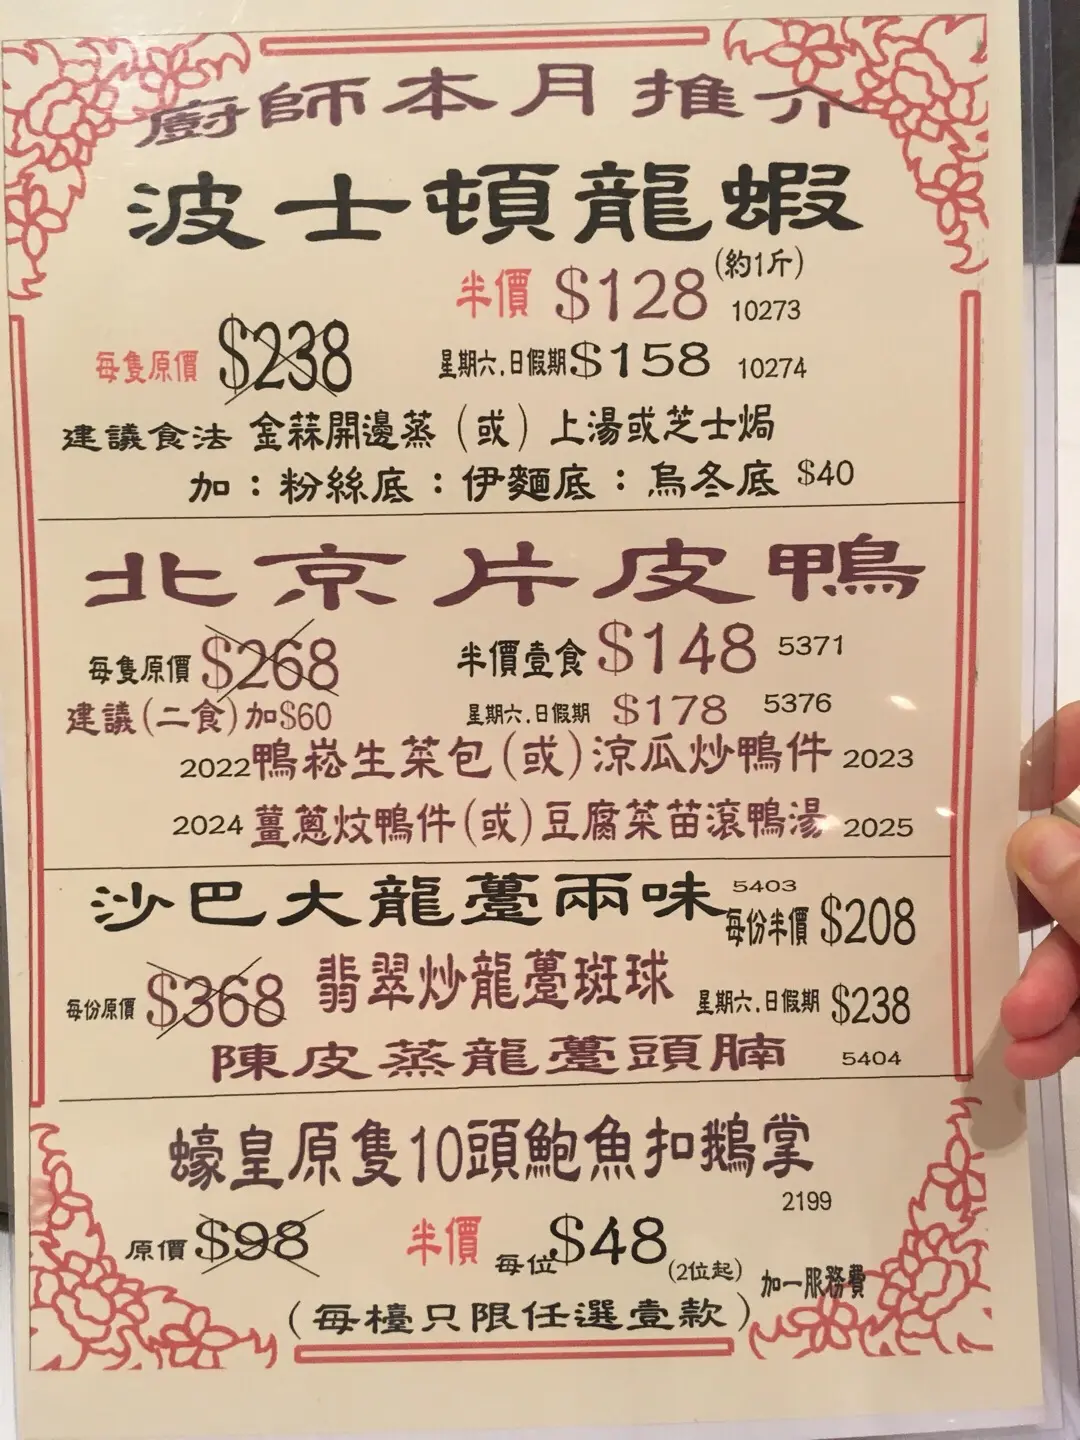 廚師本月推介
波士頓龍蝦
半價 $128 (約1斤) 10273
每隻原價 $238 星期六.日假期 $158 10274
建議食法 金蒜開邊蒸(或)上湯或芝士焗
加：粉絲底：伊麵底：烏冬底 $40
北京片皮鴨
每隻原價 $268 半價壹食 $148 5371
建議(二食)加$60 星期六.日假期 $178 5376
2022 鴨崧生菜包(或)涼瓜炒鴨件 2023
2024 薑蔥炆鴨件(或)豆腐菜苗滾鴨湯 2025
沙巴大龍躉兩味 5403 每份半價 $208
每份原價 $368 翡翠炒龍躉斑球 星期六.日假期 $238
陳皮蒸龍躉頭腩 5404
蠔皇原隻10頭鮑魚扣鵝掌
2199
原價 $98 半價 每位 $48 (2位起) 加一服務費
(每檯只限任選壹款)